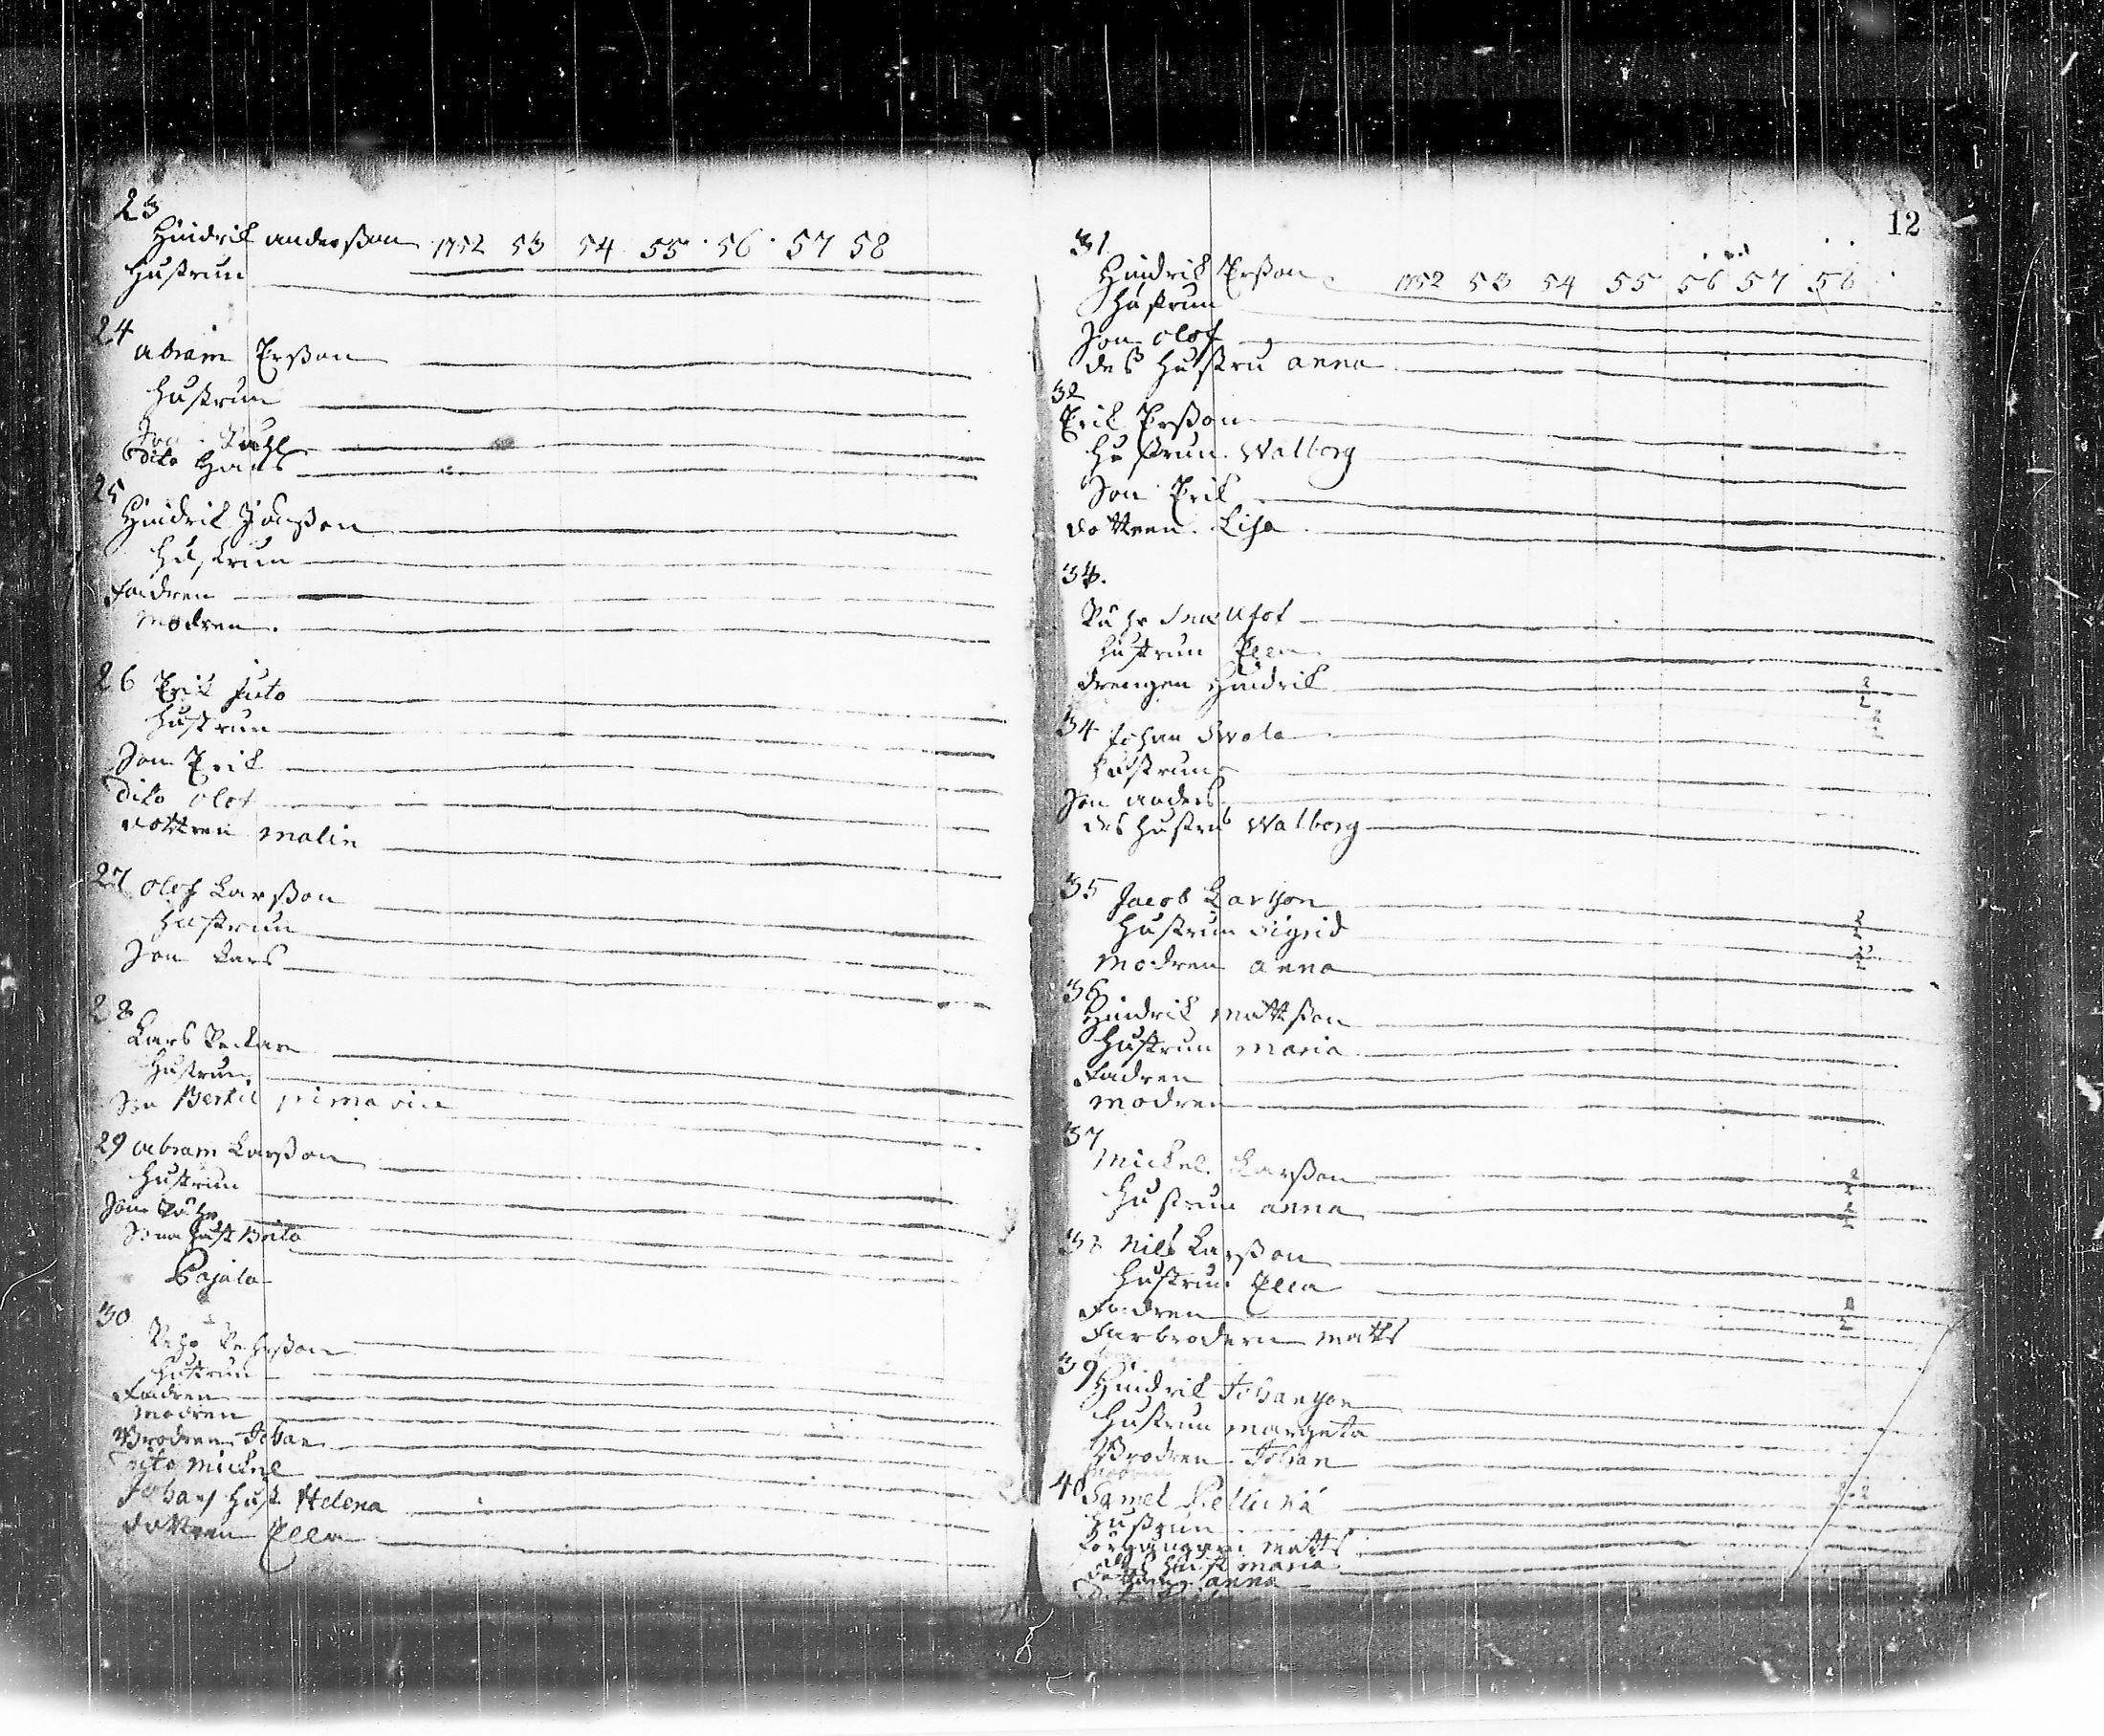 23
Hindrik anderßon 1752 53 54 55 56 57 58
Hustrun
24
abram Erßon
hustrun
Son Påhl
Dito Hans
25
Hindrik Jönßon
hustrun
Fadren
modren
26 Erik juto
hustrun
Son Erik
Dito olof
dottren malin
27 olof Larßon
hustrun
Son Lars
28
Lars
Hustrun
Son Bertil
29 abram Larßon
hustrun
Son Påhr
Sona hust Brita
Pajala
30
Pehr Pehrßon
hustrun
Fadren
modren
Brodren Johan
Dito mickel
Johans hust Helena
dottren Ella
12
31
Hindrik Erßon 1752 53 54 55 56 57 58
hustrun
Son olof
des hustru anna
32
Erik Erßon
hustrun Walborg
Son Erik
dottren Lisa
34.
Påhr
hustrun Ella
drengen Hindrik
34 Johan Swala
hustrun
Son anders
des hustru Walborg
35 Jacob Larsson
hustrun Sigrid
modren anna
36
Hindrik mattsson
hustrun maria
Fadren
modren
37
mickel Larßon
hustrun anna
38 Nils Larßon
hustrun Ella
Fadren
Farbrodern matts
39 Hindrik Johansson
hustrun margeta
Brodren Johan
modren
40 Samel
hustrun
matts
hust maria
anna
8